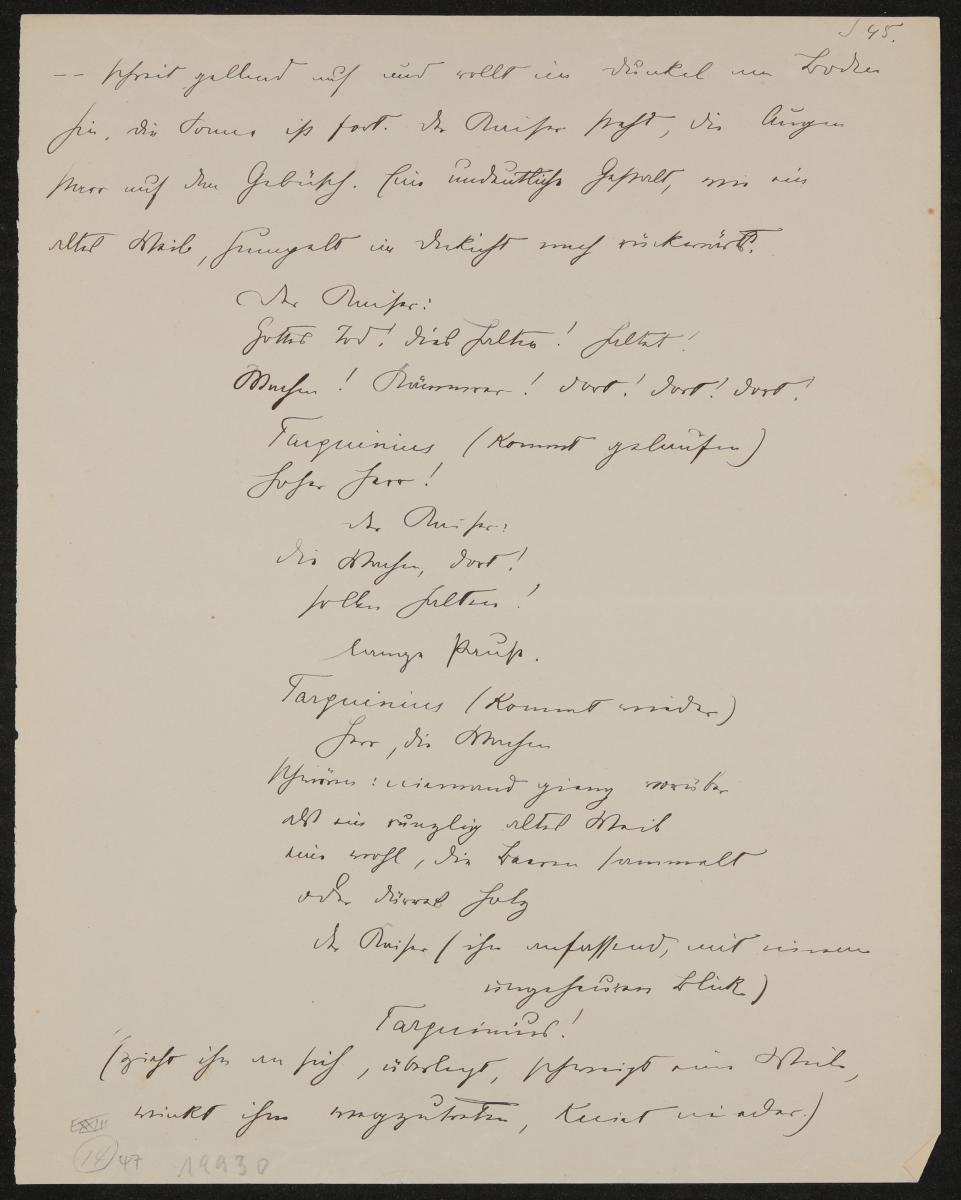 45.
-- schreit gellend auf und rollt im Dunkel am Boden
hin, die Sonne ist fort. Der Kaiser steht, die Augen
starr auf dem Gebüsch. Eine undeutliche Gestalt, wie ein
altes Weib, humpelt im Dickicht nach rückwärts.
Der Kaiser:
Gottes Tod! dies halten! haltet!
Wachen! Kämmerer! dort! dort! dort!
Tarquinius (kommt gelaufen)
Hoher Herr!
der Kaiser:
die Wachen, dort!
sollen halten!
lange Pause.
Tarquinius (kommt wieder)
Herr, die Wachen
schwören: niemand gieng vorüber
als ein runzlig altes Weib
eine wohl, die Beeren sammelt
oder dürres Holz
der Kaiser (ihn anfassend, mit einem
ungeheuren Blick)
Tarquinius!
(zieht ihn an sich, überlegt, schweigt eine Weile,
winkt ihm wegzutreten, kniet nieder.)
14 47 19930